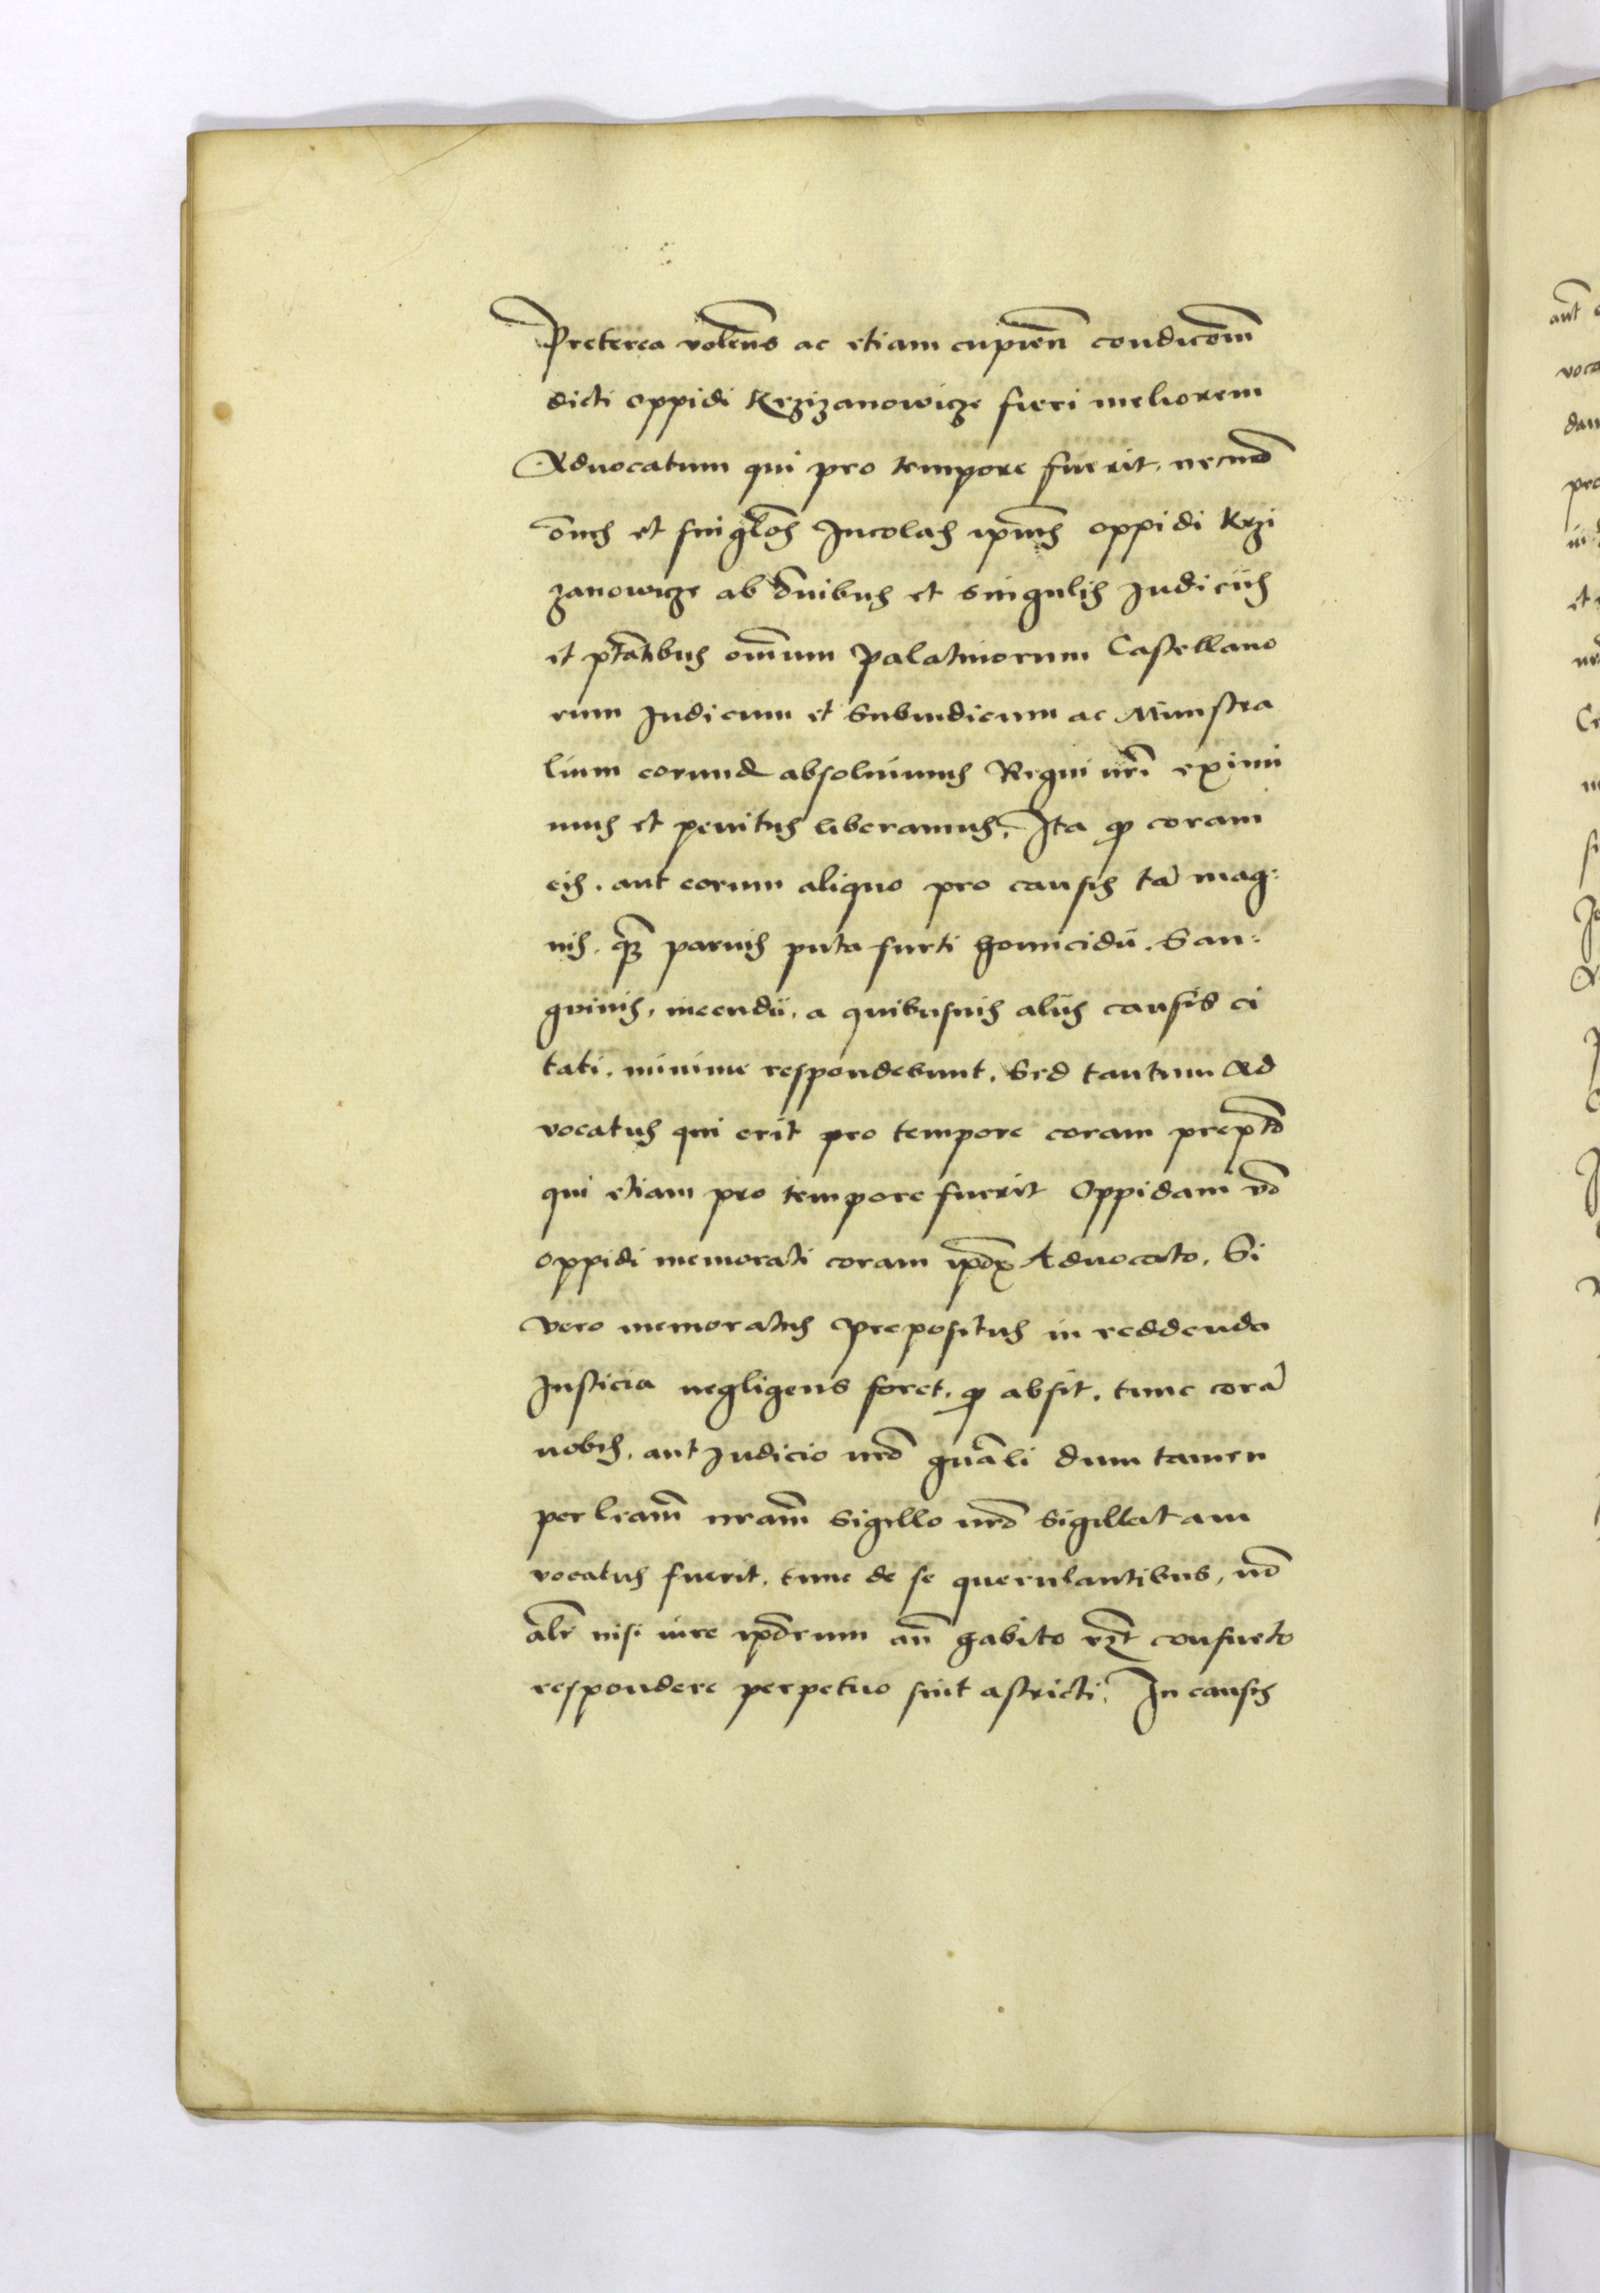 Preterea volens ac etiam cupien̄ condicōm̄
dicti oppidi Krzizanowicze fieri meliorem
Advocatum qui pro tempore fuerit, necnō
om̄es et singl̄os Incolas ip̄ius oppidi Krzi
zanowicze ab om̄ibus et singulis Iudiciis
et ptātibus om̄ium Palatinorum Castellano
rum Iudicum et Subiudicum ac Ministea
lium eorund absolvimus Regni nr̄i eximi
mus et penitus liberamus, Ita ꝙ coram
eis, aut eorum aliquo pro causis tā mag:
nis, qȝ̄ parvis puta furti homicidii, San:
gvinis, incendii, a quibusvis aliis causis ci
tati, minime respondebunt, Sed tantum Ad
vocatus qui erit pro tempore coram prepto
qui etiam pro tempore fuerit Oppidani vō
oppidi memorati coram ip̄ox Advocato, Si
vero memoratus Prepositus in reddenda
Iusticia negligens foret, ꝙ absit, tunc corā
nobis, aut Iudicio nrō gnāli dum tamen
per lr̄am̄ nram̄ Sigillo nrō Sigillatam
vocatus fuerit, tunc de se querulantibus, nō
alr̄ nisi iure ip̄orum an̄ habito et consueto
respondere perpetuo sint astricti, In causis
aut
voca
dam
pro
et